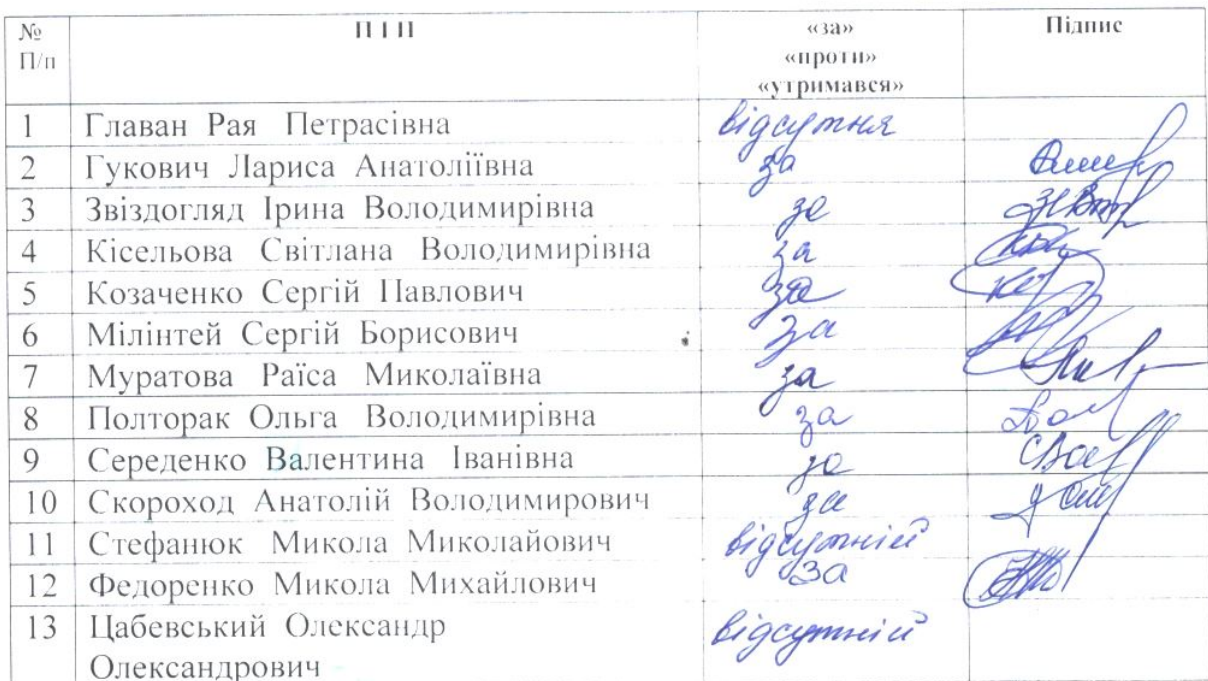 № П І П «за» Підпис
П/п «проти»
«утримався»
1 Главан Рая Петрасівна відсутня
2 Гукович Лариса Анатоліївна за
3 Звіздогляд Ірина Володимирівна за
4 Кісельова Світлана Володимирівна за
5 Козаченко Сергій Павлович за
6 Мілінтей Сергій Борисович за
7 Муратова Раїса Миколаївна за
8 Полторак Ольга Володимирівна за
9 Середенко Валентина Іванівна за
10 Скороход Анатолій Володимирович за
11 Стефанюк Микола Миколайович відсутній
12 Федоренко Микола Михайлович за
13 Цабевський Олександр відсутній
Олександрович